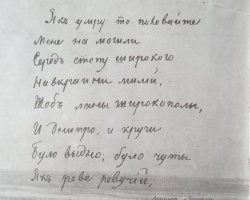 Якъ умру то поховайте
Мене на могили
Середъ степу широкого
На вкраини милій,
Щобъ ланы широкополы,
И Днипро, и кручи
Було выдно; було чуты
Якъ реве ревучій,